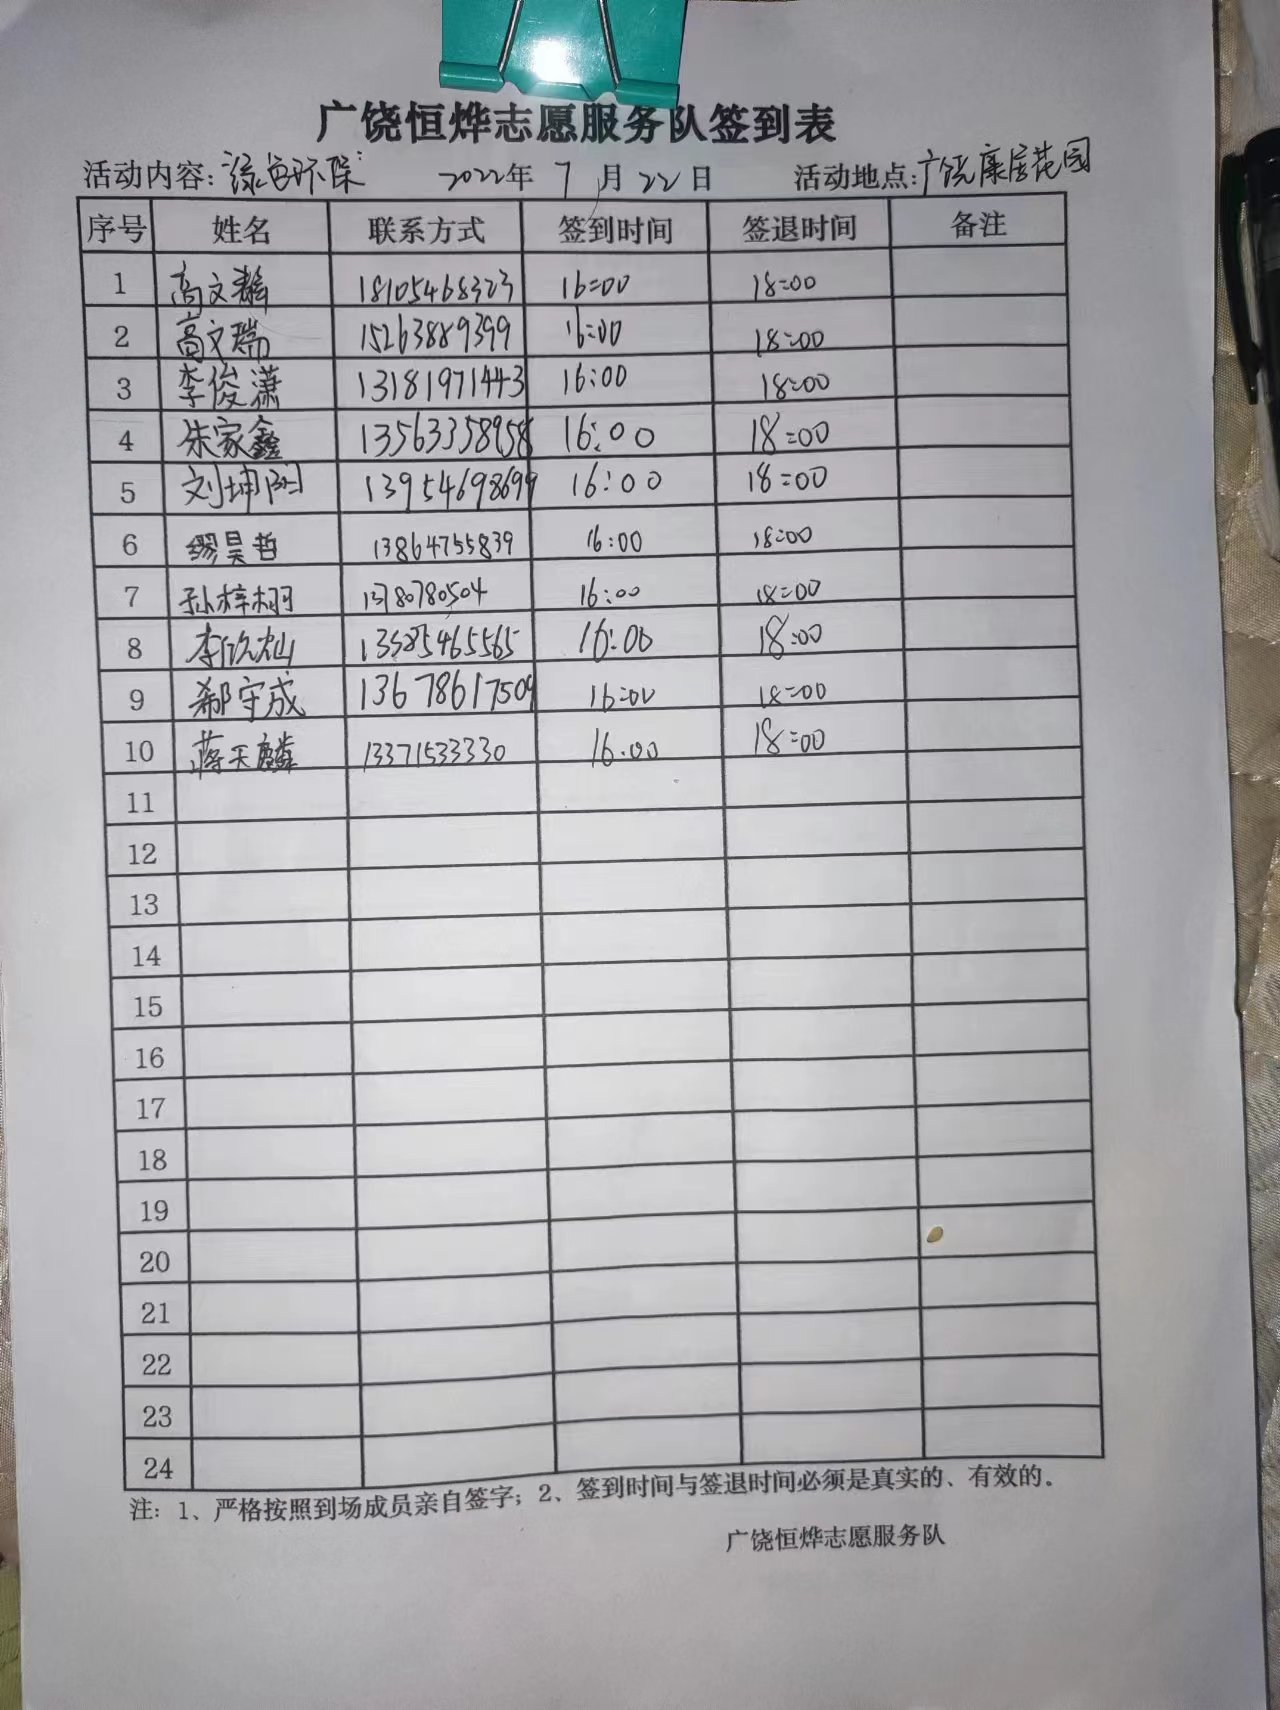 广饶恒烨志愿服务队签到表
活动内容:“绿色环保” 2022年 7月22日 活动地点:广饶康居花园
序号 姓名 联系方式 签到时间 签退时间 备注
1 高文 18105468323 16:00 18:00
2 高文瑞 15263889399 16:00 18:00
3 李俊潇 13181971443 16:00 18:00
4 朱家鑫 13563358958 16:00 18:00
5 刘坤阳 13954698699 16:00 18:00
6 缪昊哲 13864755839 16:00 18:00
7 孙梓栩 13780780504 16:00 18:00
8 李欣灿 16:00 18:00
9 郗守成 13678617509 16:00 18:00
10 蒋天麟 13371533330 16:00 18:00
11
12
13
14
15
16
17
18
19
20
21
22
23
24
注：1、严格按照到场成员亲自签字；2、签到时间与签退时间必须是真实的、有效的。
广饶恒烨志愿服务队